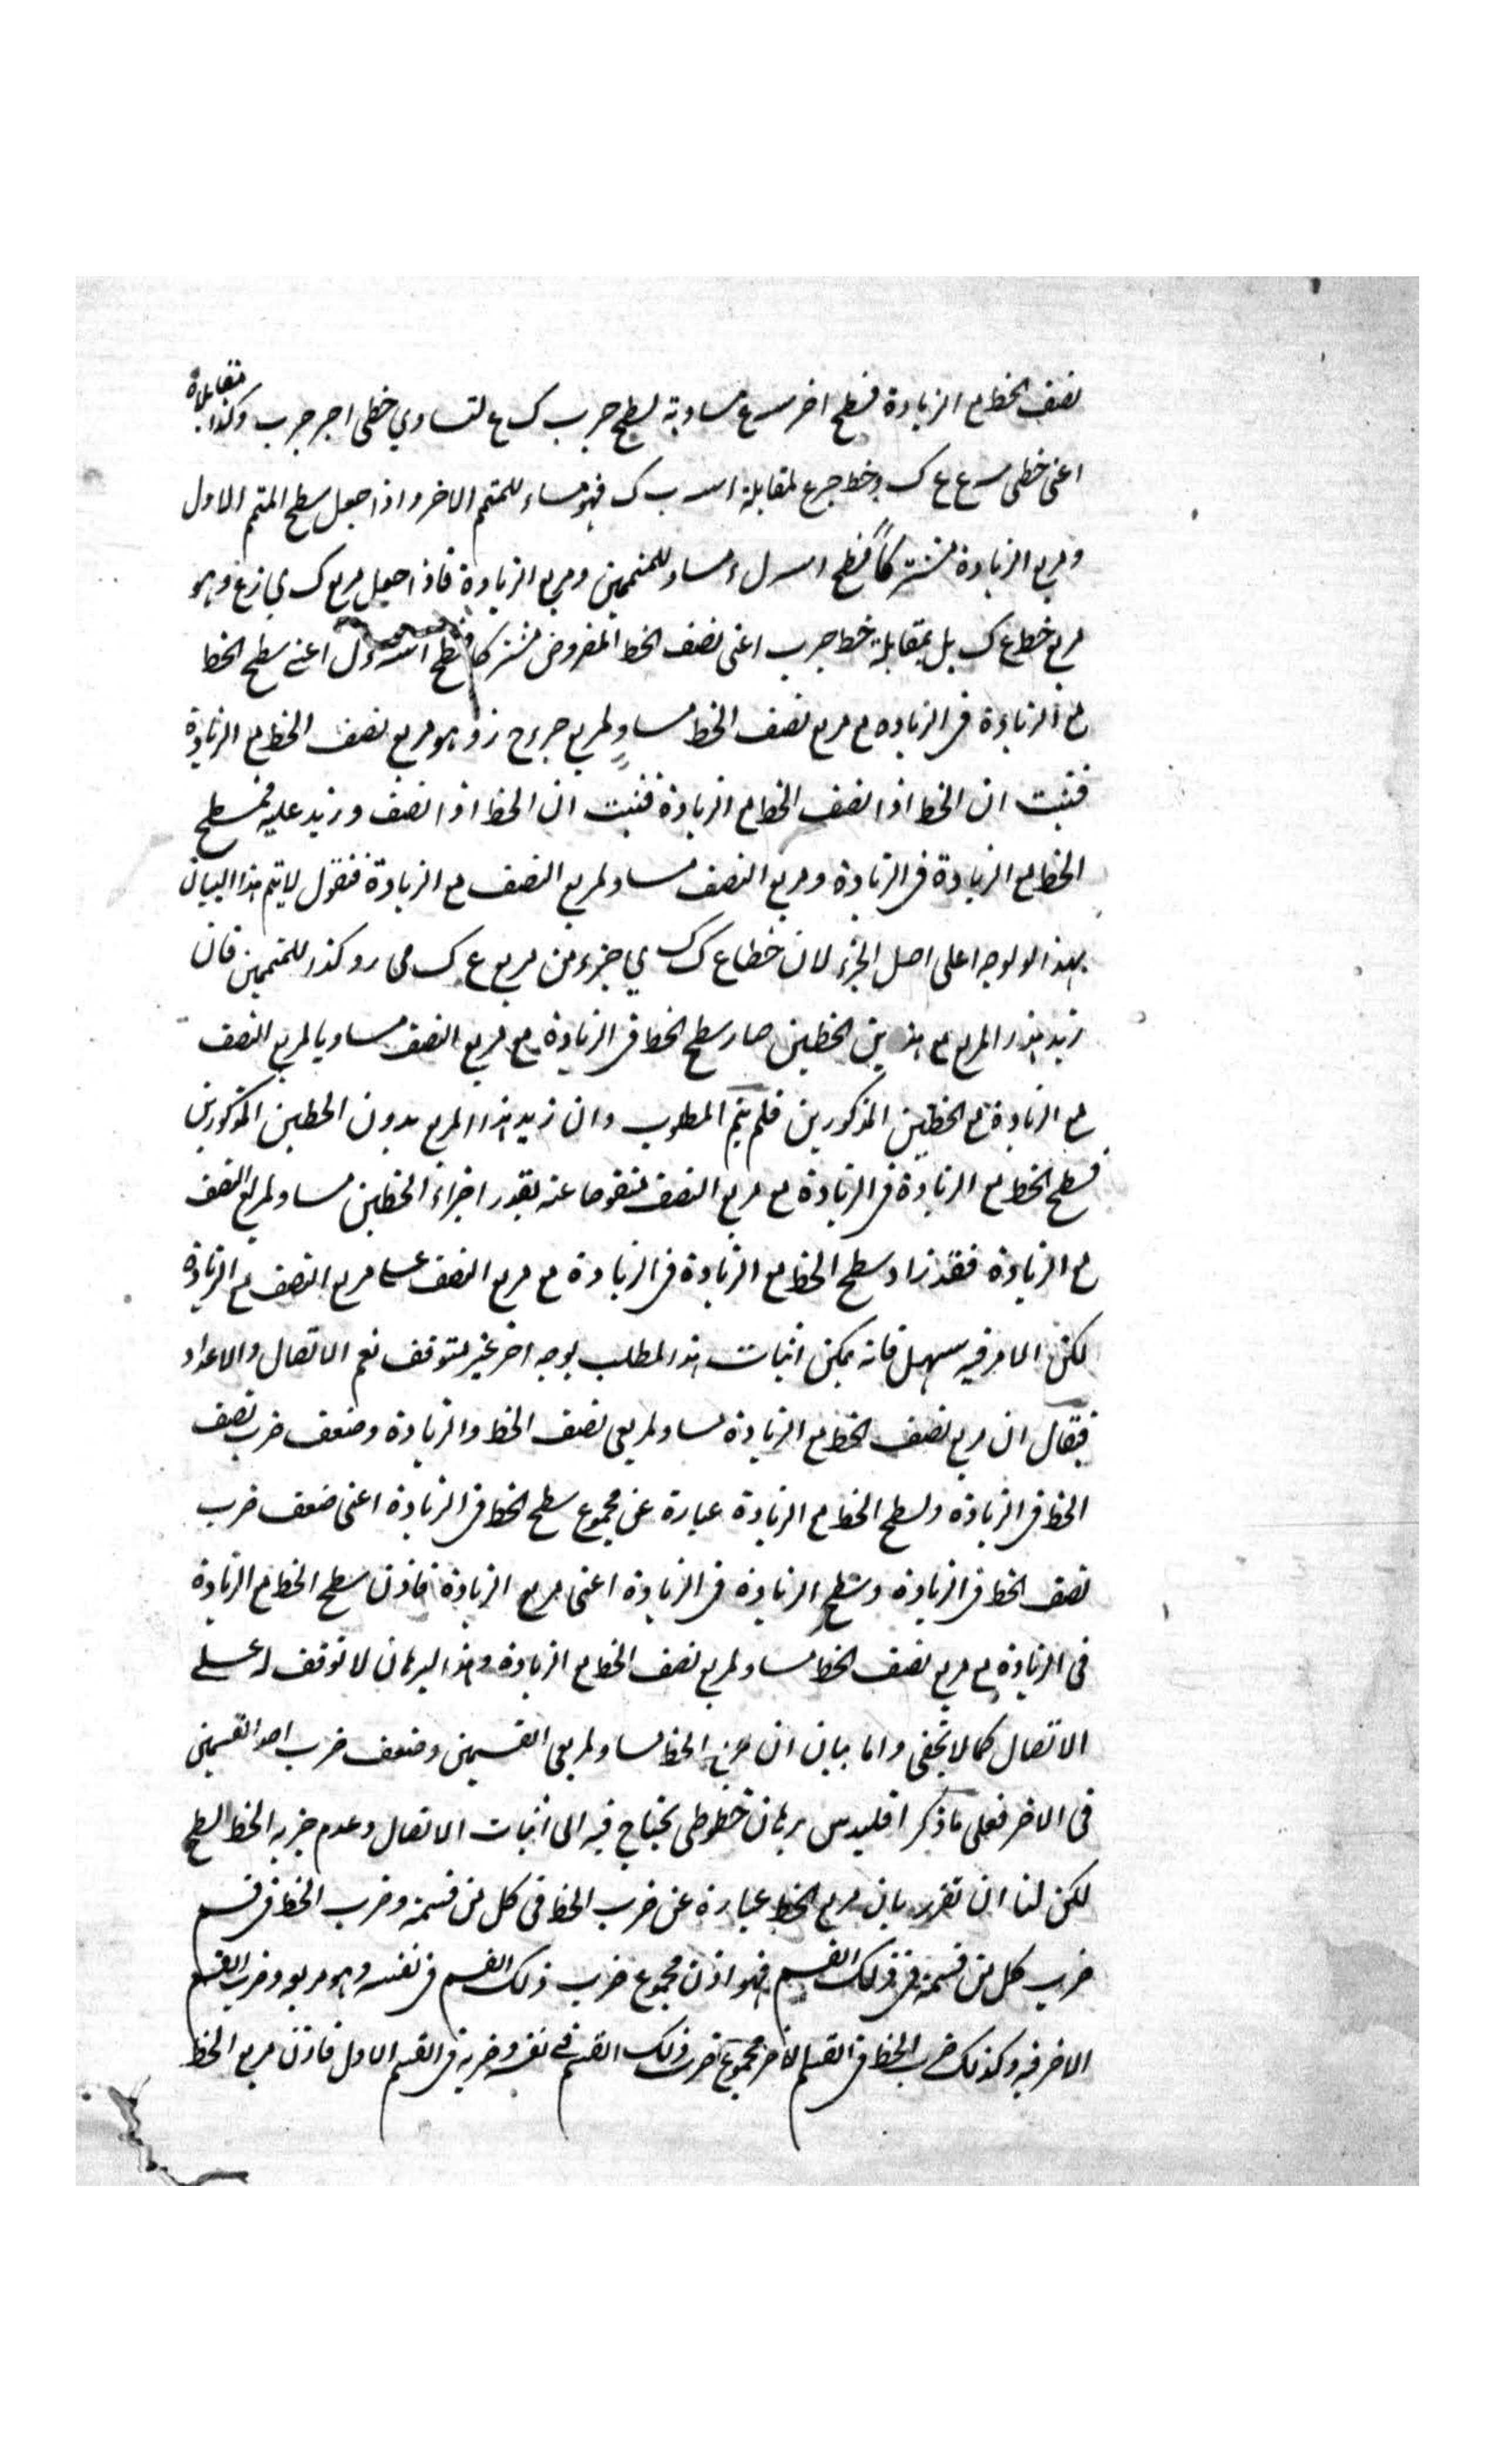 نصف الخط مع الزيادة فسطح اح سع مساوية لسطح حرب ك ع لتساوي خطى اجر جرب وكذا مقابلاه
اعنى خطى سع ع ك وخط جرع لمقابلة اس ب ك فهو مساو للمتمم الاخر واذا جعل سطح المتمم الاول
ومربع الزيادة مشتركاً فسطح اس ل ء مساو للمتممين ومربع الزيادة فاذا جعل مربع ك ي زع وهو
مربع خط ع ك بل بمقابلة خط جرب اعنى نصف الخط المفروض مشتركا فسطح اس ءل اعنى سطح الخط
مع الزيادة فى الزياده مع مربع نصف الخط مساوٍ لمربع جرءح زو هو مربع نصف الخط مع الزيادة
فثبت ان الخط اذا نصف الخط مع الزيادة فثبت ان الخط اذا نصف وزيد عليه فمسطح
الخط مع الزيادة فى الزيادة ومربع النصف مساو لمربع النصف مع الزيادة فنقول لا يتم هذا البيان
بهذا الوجه على اصل الجزء لان خطاع ك ك ي جزء من مربع ع ك مى رو كذا للمتممين فان
زيد هذا المربع مع هذين الخطين صار سطح الخط فى الزيادة مع مربع النصف مساويا لمربع النصف
مع الزيادة مع الخطين المذكورين فلم يتم المطلوب وان زيد هذا المربع بدون الخطين المذكورين
فسطح الخط مع الزيادة فى الزيادة مع مربع النصف منقوصا عنه بقدر اجزاء الخطين مساو لمربع النصف
مع الزيادة فقد زاد سطح الخط مع الزيادة فى الزيادة مع مربع النصف على مربع النصف مع الزيادة
لكن الامر فيه سهل فانه يمكن اثبات هذا المطلب بوجه اخر غير متوقف نعم الاتصال والاعداد
فيقال ان مربع نصف الخط مع الزيادة مساو لمربعى نصف الخط والزيادة وضعف ضرب نصف
الخط فى الزيادة ولسطح الخط مع الزيادة عبارة عن مجموع سطح الخط فى الزيادة اعنى ضعف ضرب
نصف الخط فى الزيادة وسطح الزيادة فى الزيادة اعنى مربع الزيادة فاذن سطح الخط مع الزيادة
فى الزيادة مع مربع نصف الخط مساو لمربع نصف الخط مع الزيادة وهذا البرهان لا توقف له على
الاتصال كما لا يخفى واما بيان ان مربع الخط مساو لمربعى القسمين وضعف ضرب احد القسمين
فى الاخر فعلى ما ذكر اقليدس برهان خطوطى يحتاج فيه الى اثبات الاتصال وعدم جزيه الخط السطح
لكن لنا ان نقرر بان مربع الخط عبارة عن ضرب الخط فى كل من قسمه وضرب الخط فى قسم
ضرب كل من قسمه فى ذلك القسم فهو اذن مجموع ضرب ذلك القسم فى نفسه وهو مربعه وضرب القسم
الاخر فيه وكذلك ضرب الخط فى القسم الاخر مجموع ضرب ذلك القسم فى نفسه وضربه فى القسم الاول فاذن مربع الخط